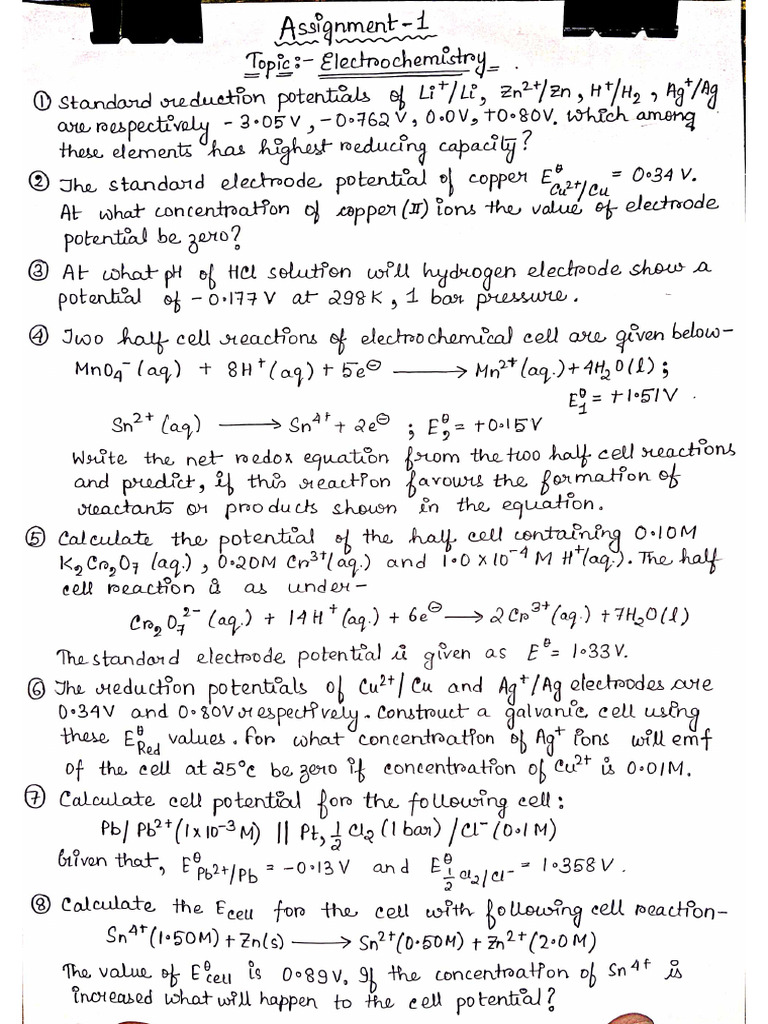 Assignment-1
Topic:- Electrochemistry.
① Standard reduction potentials of Li⁺/Li, Zn²⁺/Zn, H⁺/H₂, Ag⁺/Ag
are respectively -3.05V, -0.762V, 0.0V, +0.80V. which among
these elements has highest reducing capacity?
② The standard electrode potential of copper E^θ_Cu²⁺/Cu = 0.34 V.
At what concentration of copper (II) ions the value of electrode
potential be zero?
③ At what pH of HCl solution will hydrogen electrode show a
potential of -0.177 V at 298K, 1 bar pressure.
④ Two half cell reactions of electrochemical cell are given below-
MnO₄⁻(aq) + 8H⁺(aq) + 5e⊖ ⟶ Mn²⁺(aq.) + 4H₂O(l);
E^θ_1 = +1.51V.
Sn²⁺(aq) ⟶ Sn⁴⁺ + 2e⊖ ; E^θ_2 = +0.15V
Write the net redox equation from the two half cell reactions
and predict, if this reaction favours the formation of
reactants or products shown in the equation.
⑤ Calculate the potential of the half cell containing 0.10M
K₂Cr₂O₇ (aq.), 0.20M Cr³⁺(aq.) and 1.0 × 10⁻⁴ M H⁺(aq.). The half
cell reaction is as under-
Cr₂O₇²⁻(aq.) + 14H⁺(aq.) + 6e⊖ ⟶ 2Cr³⁺(aq.) + 7H₂O(l)
The standard electrode potential is given as E^θ = 1.33V.
⑥ The reduction potentials of Cu²⁺/Cu and Ag⁺/Ag electrodes are
0.34V and 0.80V respectively. Construct a galvanic cell using
these E^θ_Red values. For what concentration of Ag⁺ ions will emf
of the cell at 25°C be zero if concentration of Cu²⁺ is 0.01M.
⑦ Calculate cell potential for the following cell:
Pb/Pb²⁺(1×10⁻³M) || Pt, ½Cl₂(1bar)/Cl⁻(0.1M)
Given that, E^θ_Pb²⁺/Pb = -0.13V and E^θ_½Cl₂/Cl⁻ = 1.358V.
⑧ Calculate the E_cell for the cell with following cell reaction-
Sn⁴⁺(1.50M) + Zn(s) ⟶ Sn²⁺(0.50M) + Zn²⁺(2.0M)
The value of E^θ_cell is 0.89V. If the concentration of Sn⁴⁺ is
increased what will happen to the cell potential?